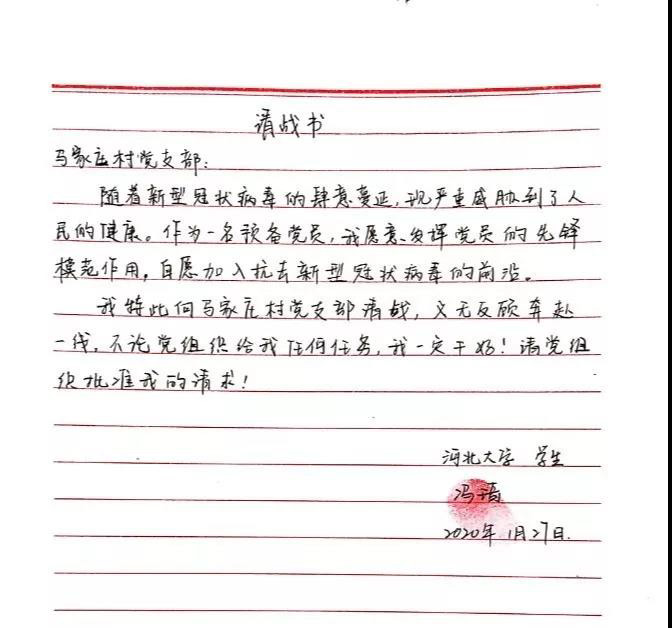 请战书
马家庄村党支部：
随着新型冠状病毒的肆意蔓延，现严重威胁到了人
民的健康。作为一名预备党员，我愿意发挥党员的先锋
模范作用，自愿加入抗击新型冠状病毒的前沿。
我特此向马家庄村党支部请战，义无反顾奔赴
一线，不论党组织给我任何任务，我一定干好！请党组
织批准我的请求！
河北大学 学生
2020年1月27日.